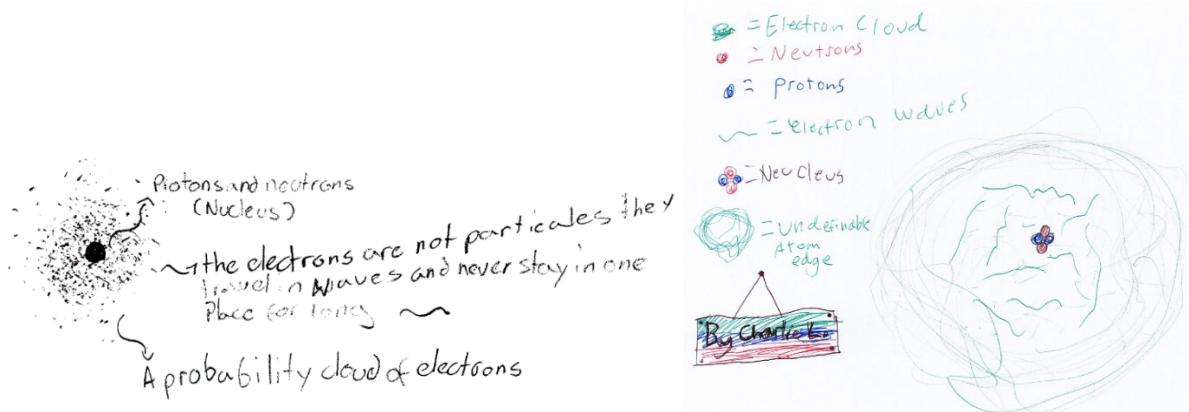 Protons and neutrons
(Nucleus)
the electrons are not particales they
travel in waves and never stay in one
Place for long
A probability cloud of electrons
= Electron Cloud
= Neutrons
= Protons
= electron waves
= Neucleus
= undefinable
Atom
edge
By Charlie L.